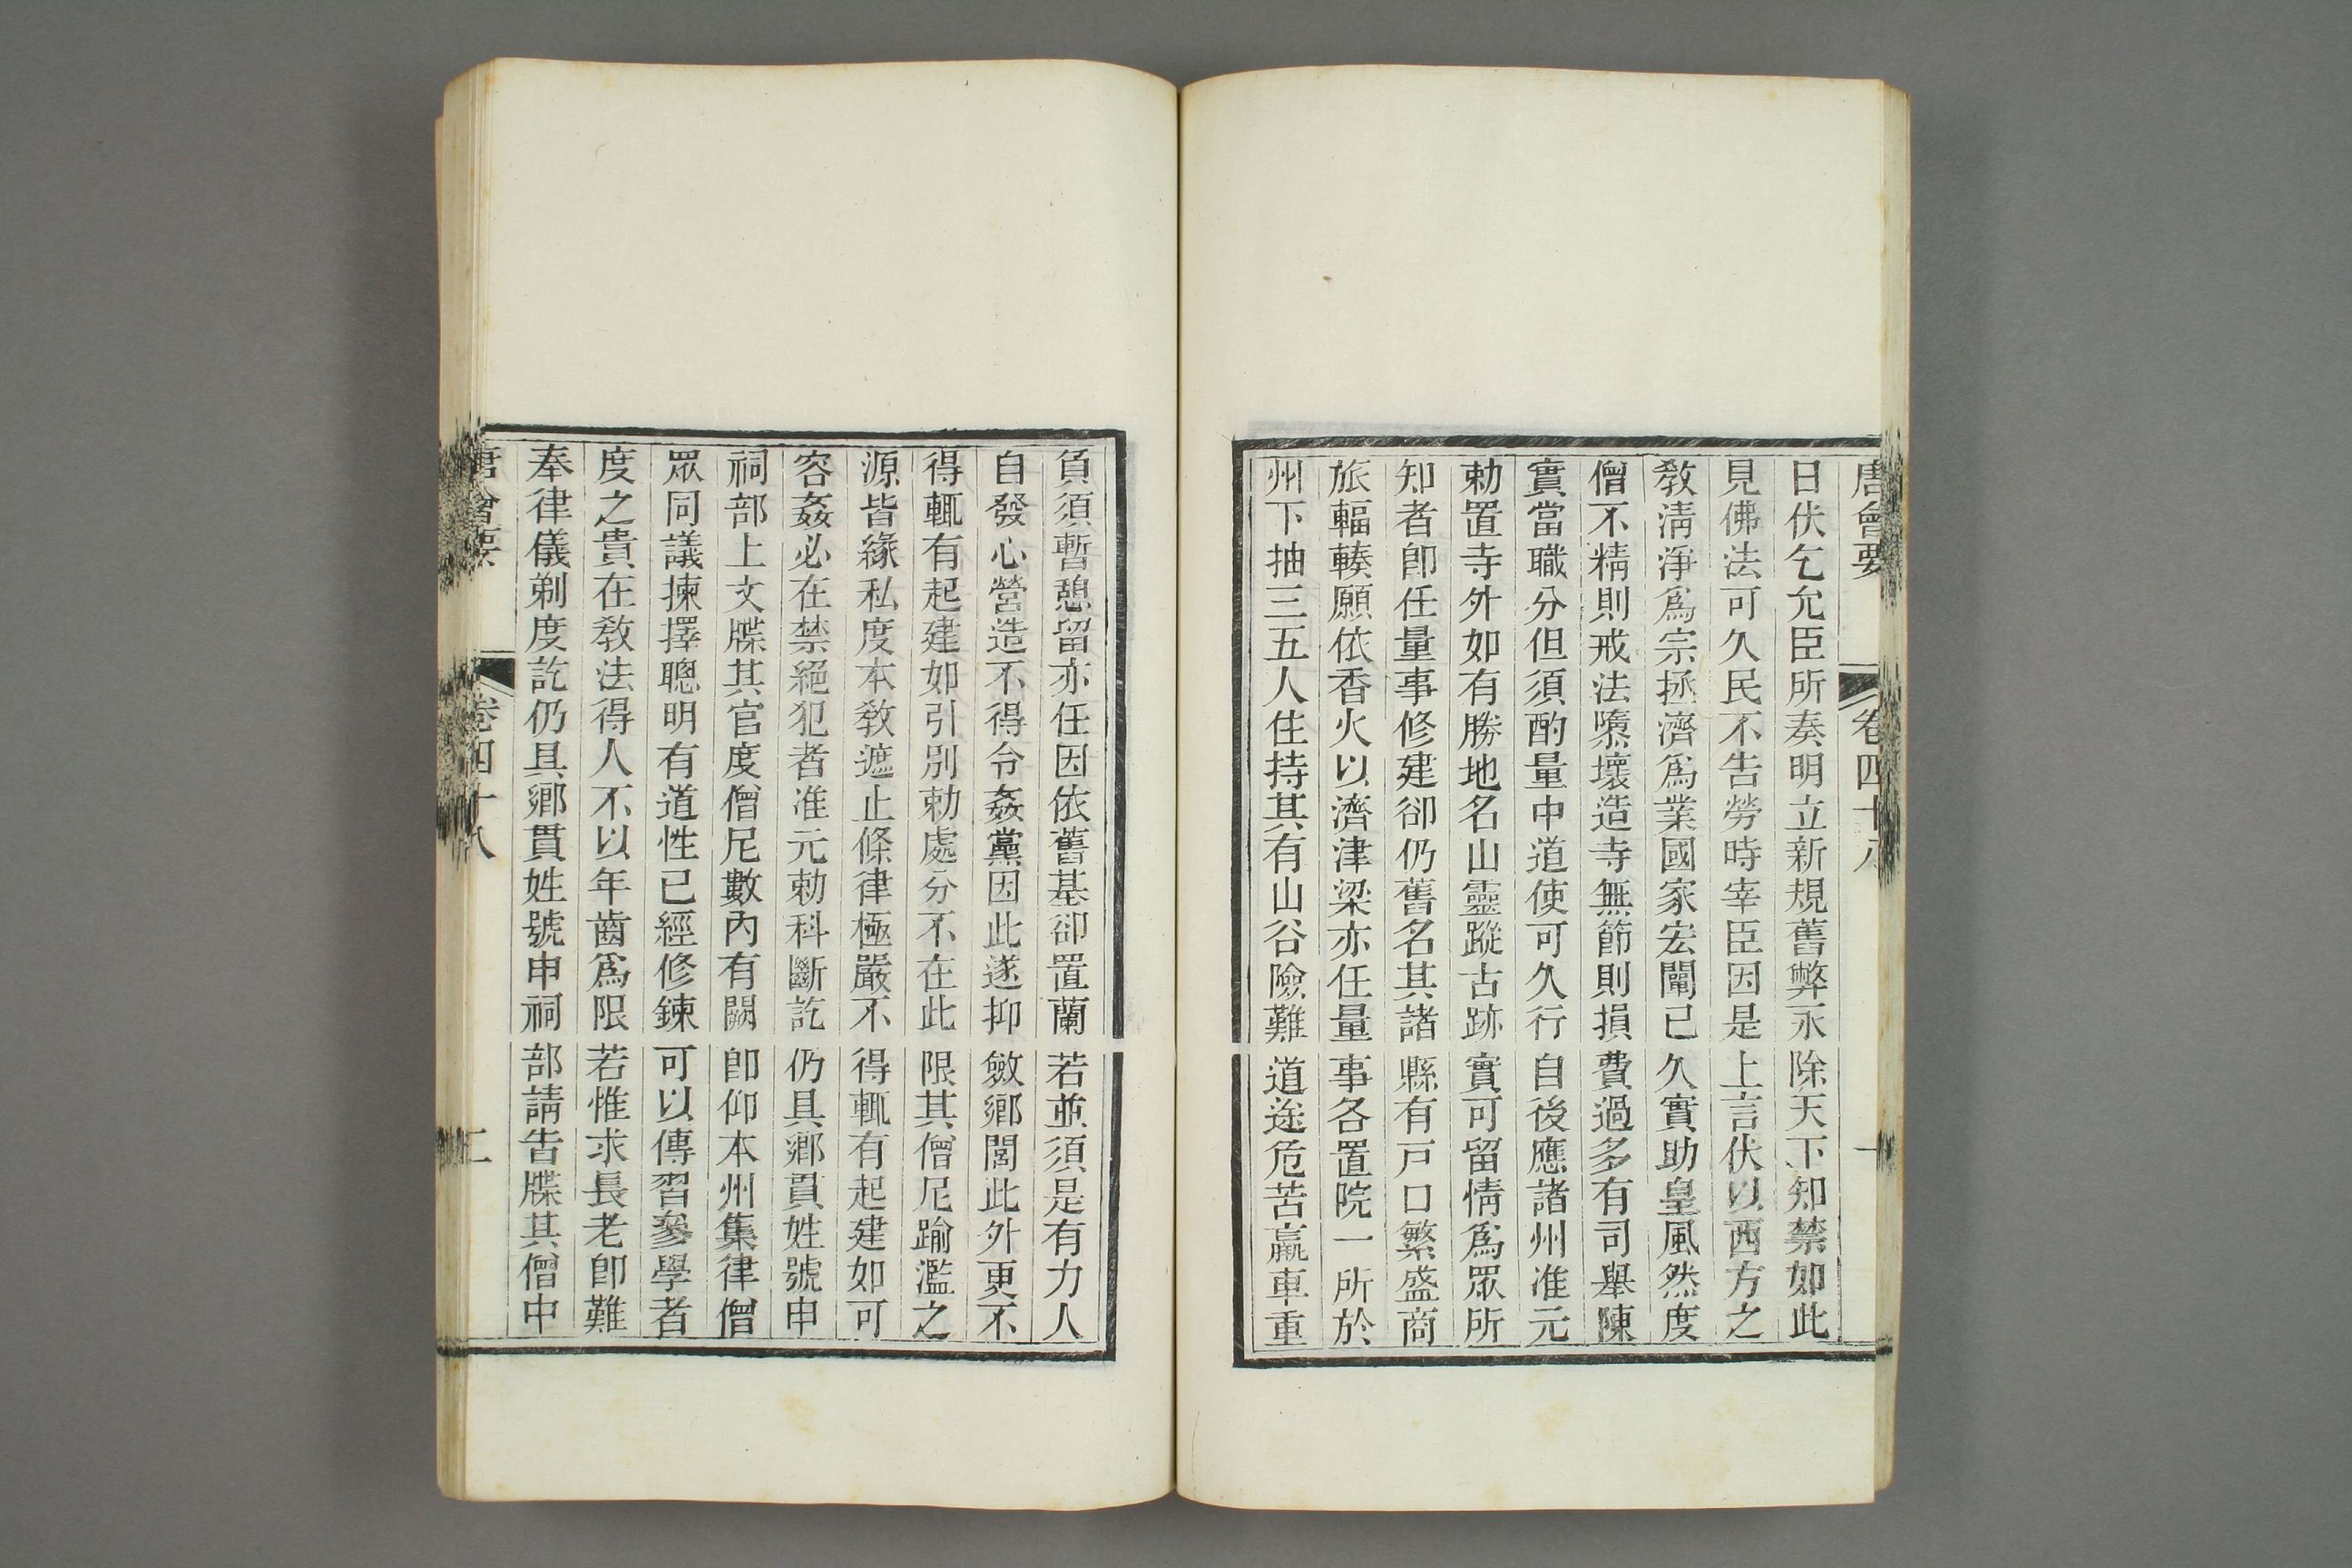 唐會要 卷四十八 一
日伏乞允臣所奏明立新規舊弊永除天下知禁如此
見佛法可久民不告勞時宰臣因是上言伏以西方之
敎淸淨爲宗拯濟爲業國家宏闡已久實助皇風然度
僧不精則戒法隳壞造寺無節則損費過多有司舉陳
實當職分但須酌量中道使可久行自後應諸州准元
勅置寺外如有勝地名山靈蹤古跡實可留情爲眾所
知者卽任量事修建卻仍舊名其諸縣有戸口繁盛商
旅輻輳願依香火以濟津梁亦任量事各置院一所於
州下抽三五人住持其有山谷險難道途危苦羸車重
負須暫憩留亦任因依舊基卻置蘭若並須是有力人
自發心營造不得令姦黨因此遂抑斂鄕閭此外更不
得輒有起建如引別勅處分不在此限其僧尼踰濫之
源皆緣私度本敎遮止條律極嚴不得輒有起建如可
容姦必在禁絕犯者准元勅科斷訖仍具鄕貫姓號申
祠部上文牒其官度僧尼數內有闕卽仰本州集律僧
眾同議揀擇聰明有道性已經修鍊可以傳習參學者
度之貴在敎法得人不以年齒爲限若惟求長老卽難
奉律儀剃度訖仍具鄕貫姓號申祠部請告牒其僧中
唐會要 卷四十八 二